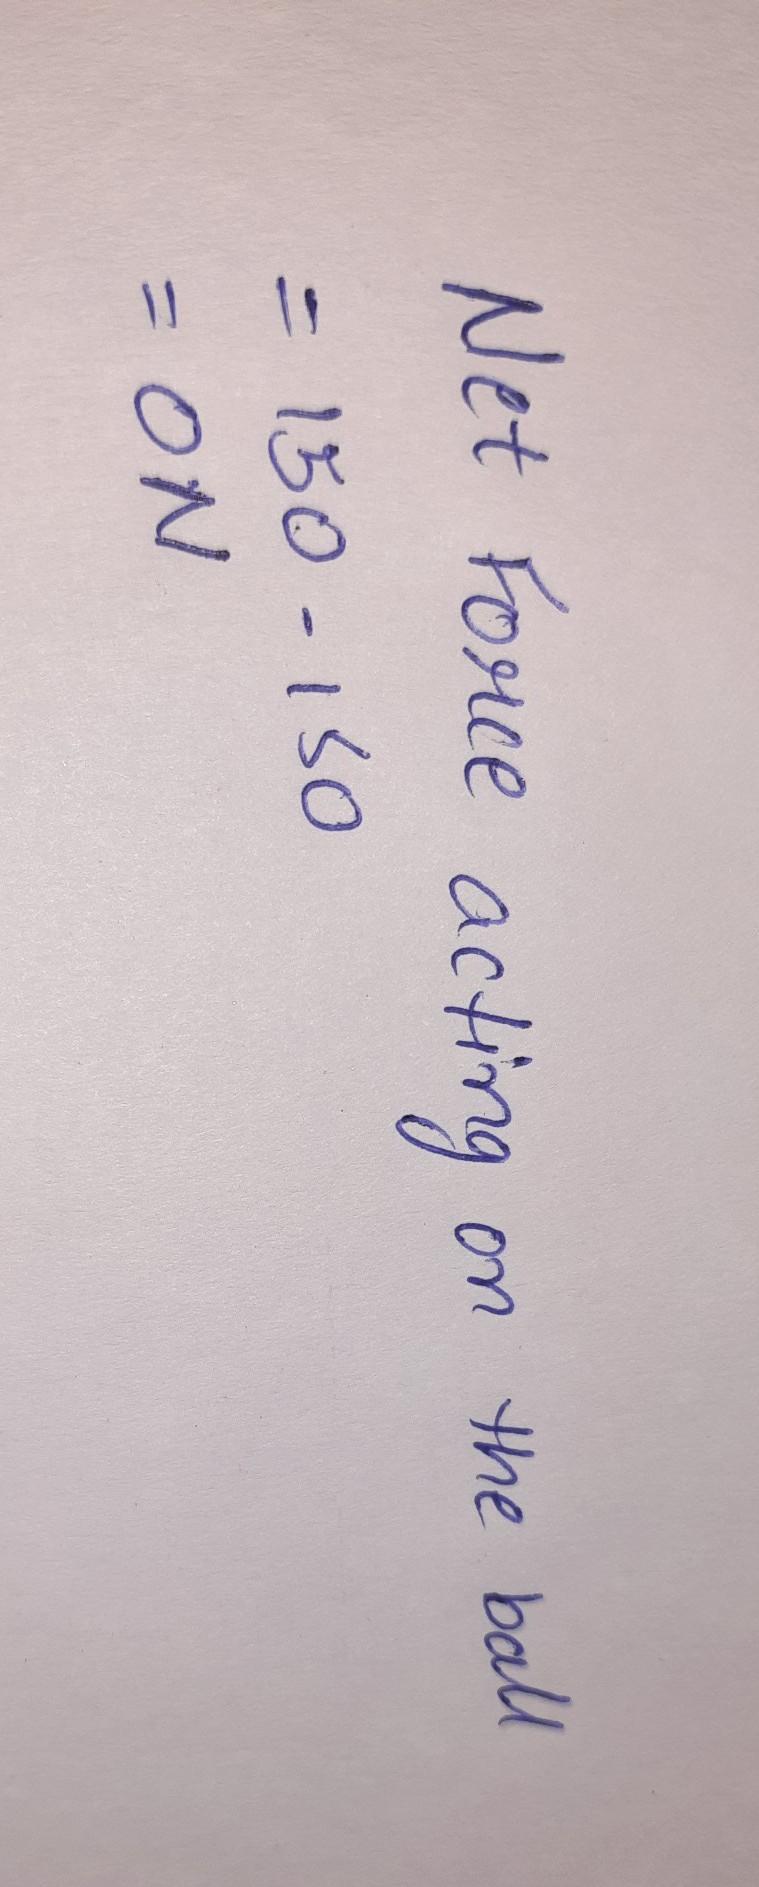 Net Force acting on the ball
= 150 - 150
= 0N